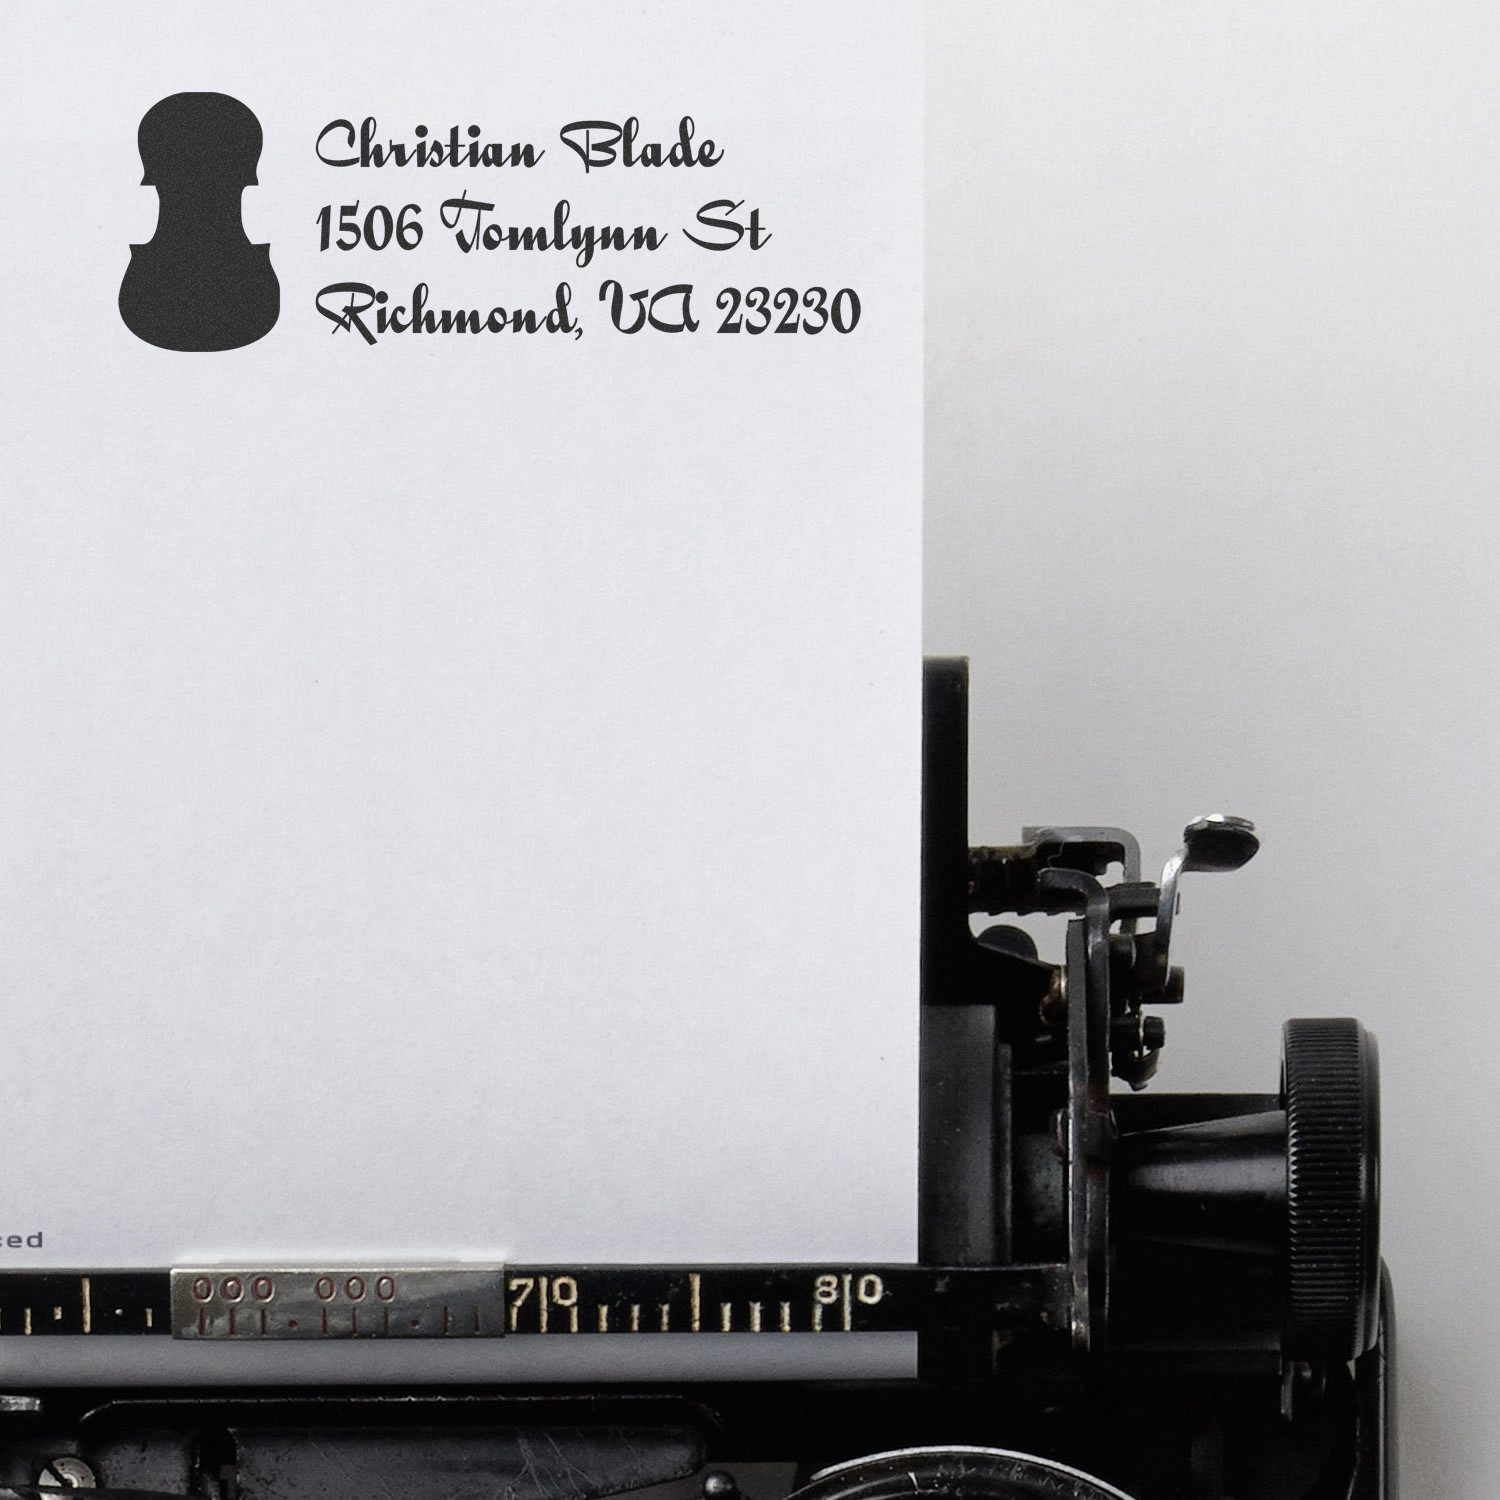 Christian Blade
1506 Tomlynn St
Richmond, VA 23230
000 000 70 80